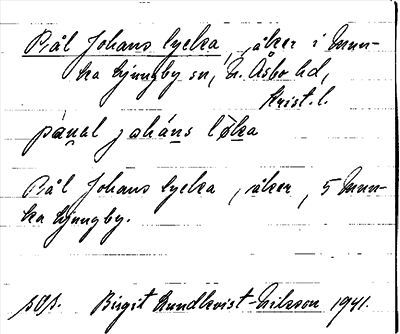 Pål Johans lycka, åker i Mun-
ka Ljungby sn, N. Åsbo hd,
Krist. l.
pánal joháns løka
Pål Johans lycka, åker, 5 Mun-
ka Ljungby.
sOs. Birgit Lundkvist-Nilsson 1941.